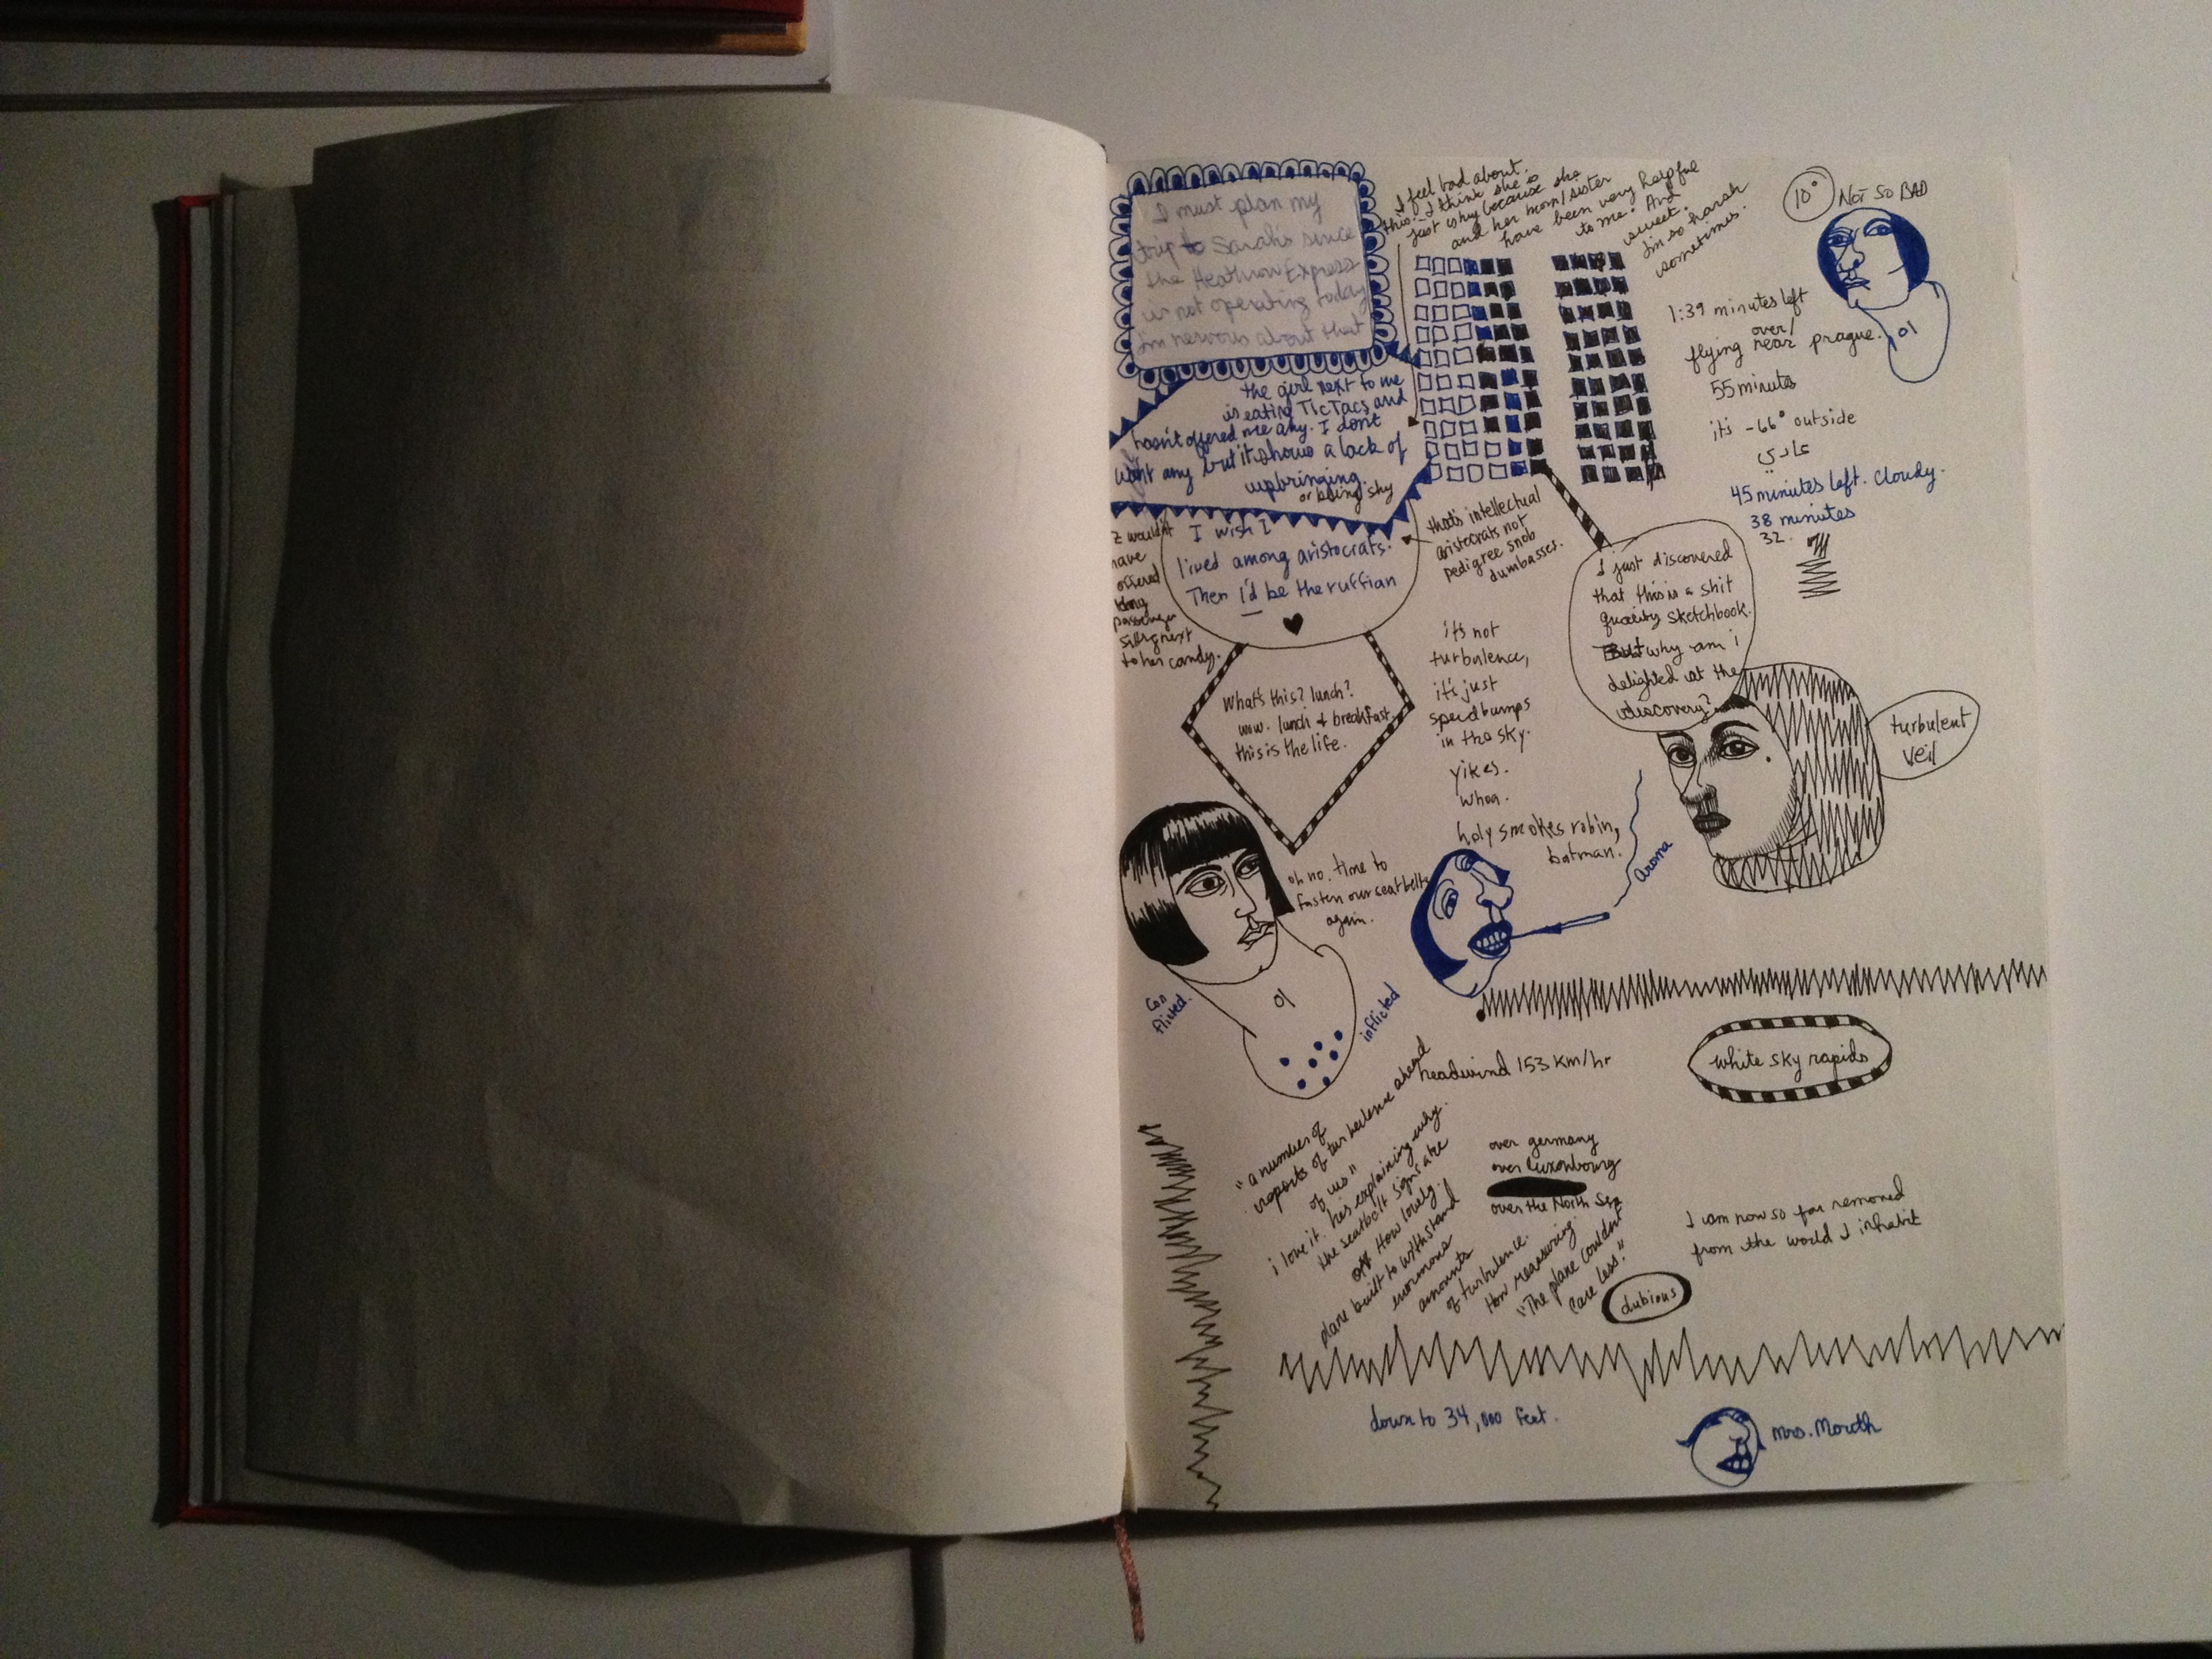 I must plan my
trip to Sarah's since
the Heathrow Express
is not operating today
I'm nervous about that
I feel bad about
this. I think she is
just shy because she
and her mom/sister
have been very helpful
to me. And
sweet.
I'm so harsh
sometimes.
10° NOT SO BAD
1:39 minutes left
over/
flying near prague.
55 minutes
its -66° outside
عادي
45 minutes left. cloudy.
38 minutes
32
the girl next to me
is eating TicTacs and
hasn't offered me any. I dont
want any but it shows a lack of
upbringing.
or being shy
I wouldn't
have
offered
passenger
sitting next
to her candy.
I wish I
lived among aristocrats.
Then I'd be the ruffian
that's intellectual
aristocrats not
pedigree snob
dumbasses.
I just discovered
that this is a shit
quality sketchbook.
But why am i
delighted at the
discovery?
turbulent
veil
What's this? lunch?
wow. lunch + breakfast
this is the life.
it's not
turbulence,
it's just
speedbumps
in the sky.
yikes.
whoa.
holy smokes robin,
batman.
aroma
oh no. time to
fasten our seatbelts
again.
Con
flicted
inflicted
headwind 153 km/hr
white sky rapids
"a number of
reports of turbulence ahead
of us"
i love it. he's explaining why
the seatbelt signs are
off. How lovely.
plane built to withstand
enormous
amounts
of turbulence.
How reassuring.
"The plane couldnt
care less."
dubious
over germany
over Luxenbourg
over the North Sea
I am now so far removed
from the world I inhabit
down to 34,000 feet.
mrs. Mouth